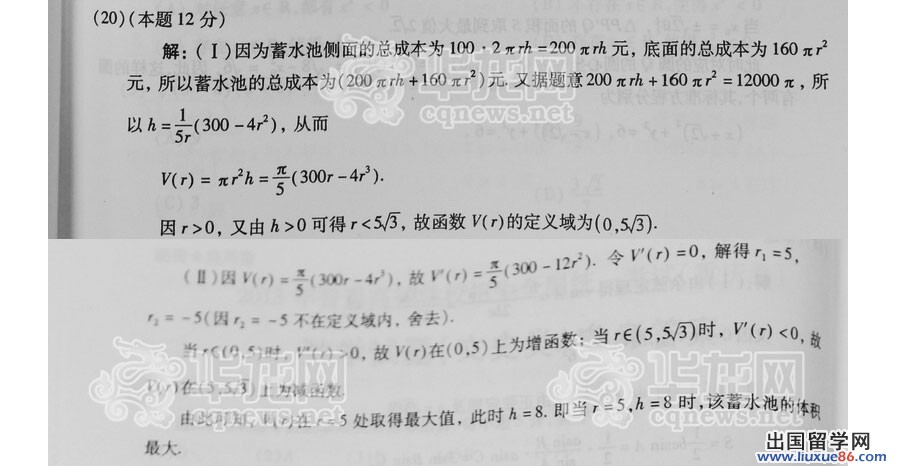 (20)(本题12分)
解:(Ⅰ)因为蓄水池侧面的总成本为100·2πrh=200πrh元,底面的总成本为160πr²
元,所以蓄水池的总成本为(200πrh+160πr²)元.又据题意200πrh+160πr²=12000π,所
以h=1/5r(300-4r²),从而
V(r)=πr²h=π/5(300r-4r³).
因r>0,又由h>0可得r<5√3,故函数V(r)的定义域为(0,5√3).
(Ⅱ)因V(r)=π/5(300r-4r³),故V′(r)=π/5(300-12r²).令V′(r)=0,解得r₁=5,
r₂=-5(因r₂=-5不在定义域内,舍去).
当r∈(0,5)时,V′(r)>0,故V(r)在(0,5)上为增函数;当r∈(5,5√3)时,V′(r)<0,故
V(r)在(5,5√3)上为减函数.
由此可知,V(r)在r=5处取得最大值,此时h=8.即当r=5,h=8时,该蓄水池的体积
最大.
华龙网
cqnews.net
华龙网
cqnews.net
华龙网
cqnews.net
华龙网
cqnews.net
出国留学网
www.liuxue86.com